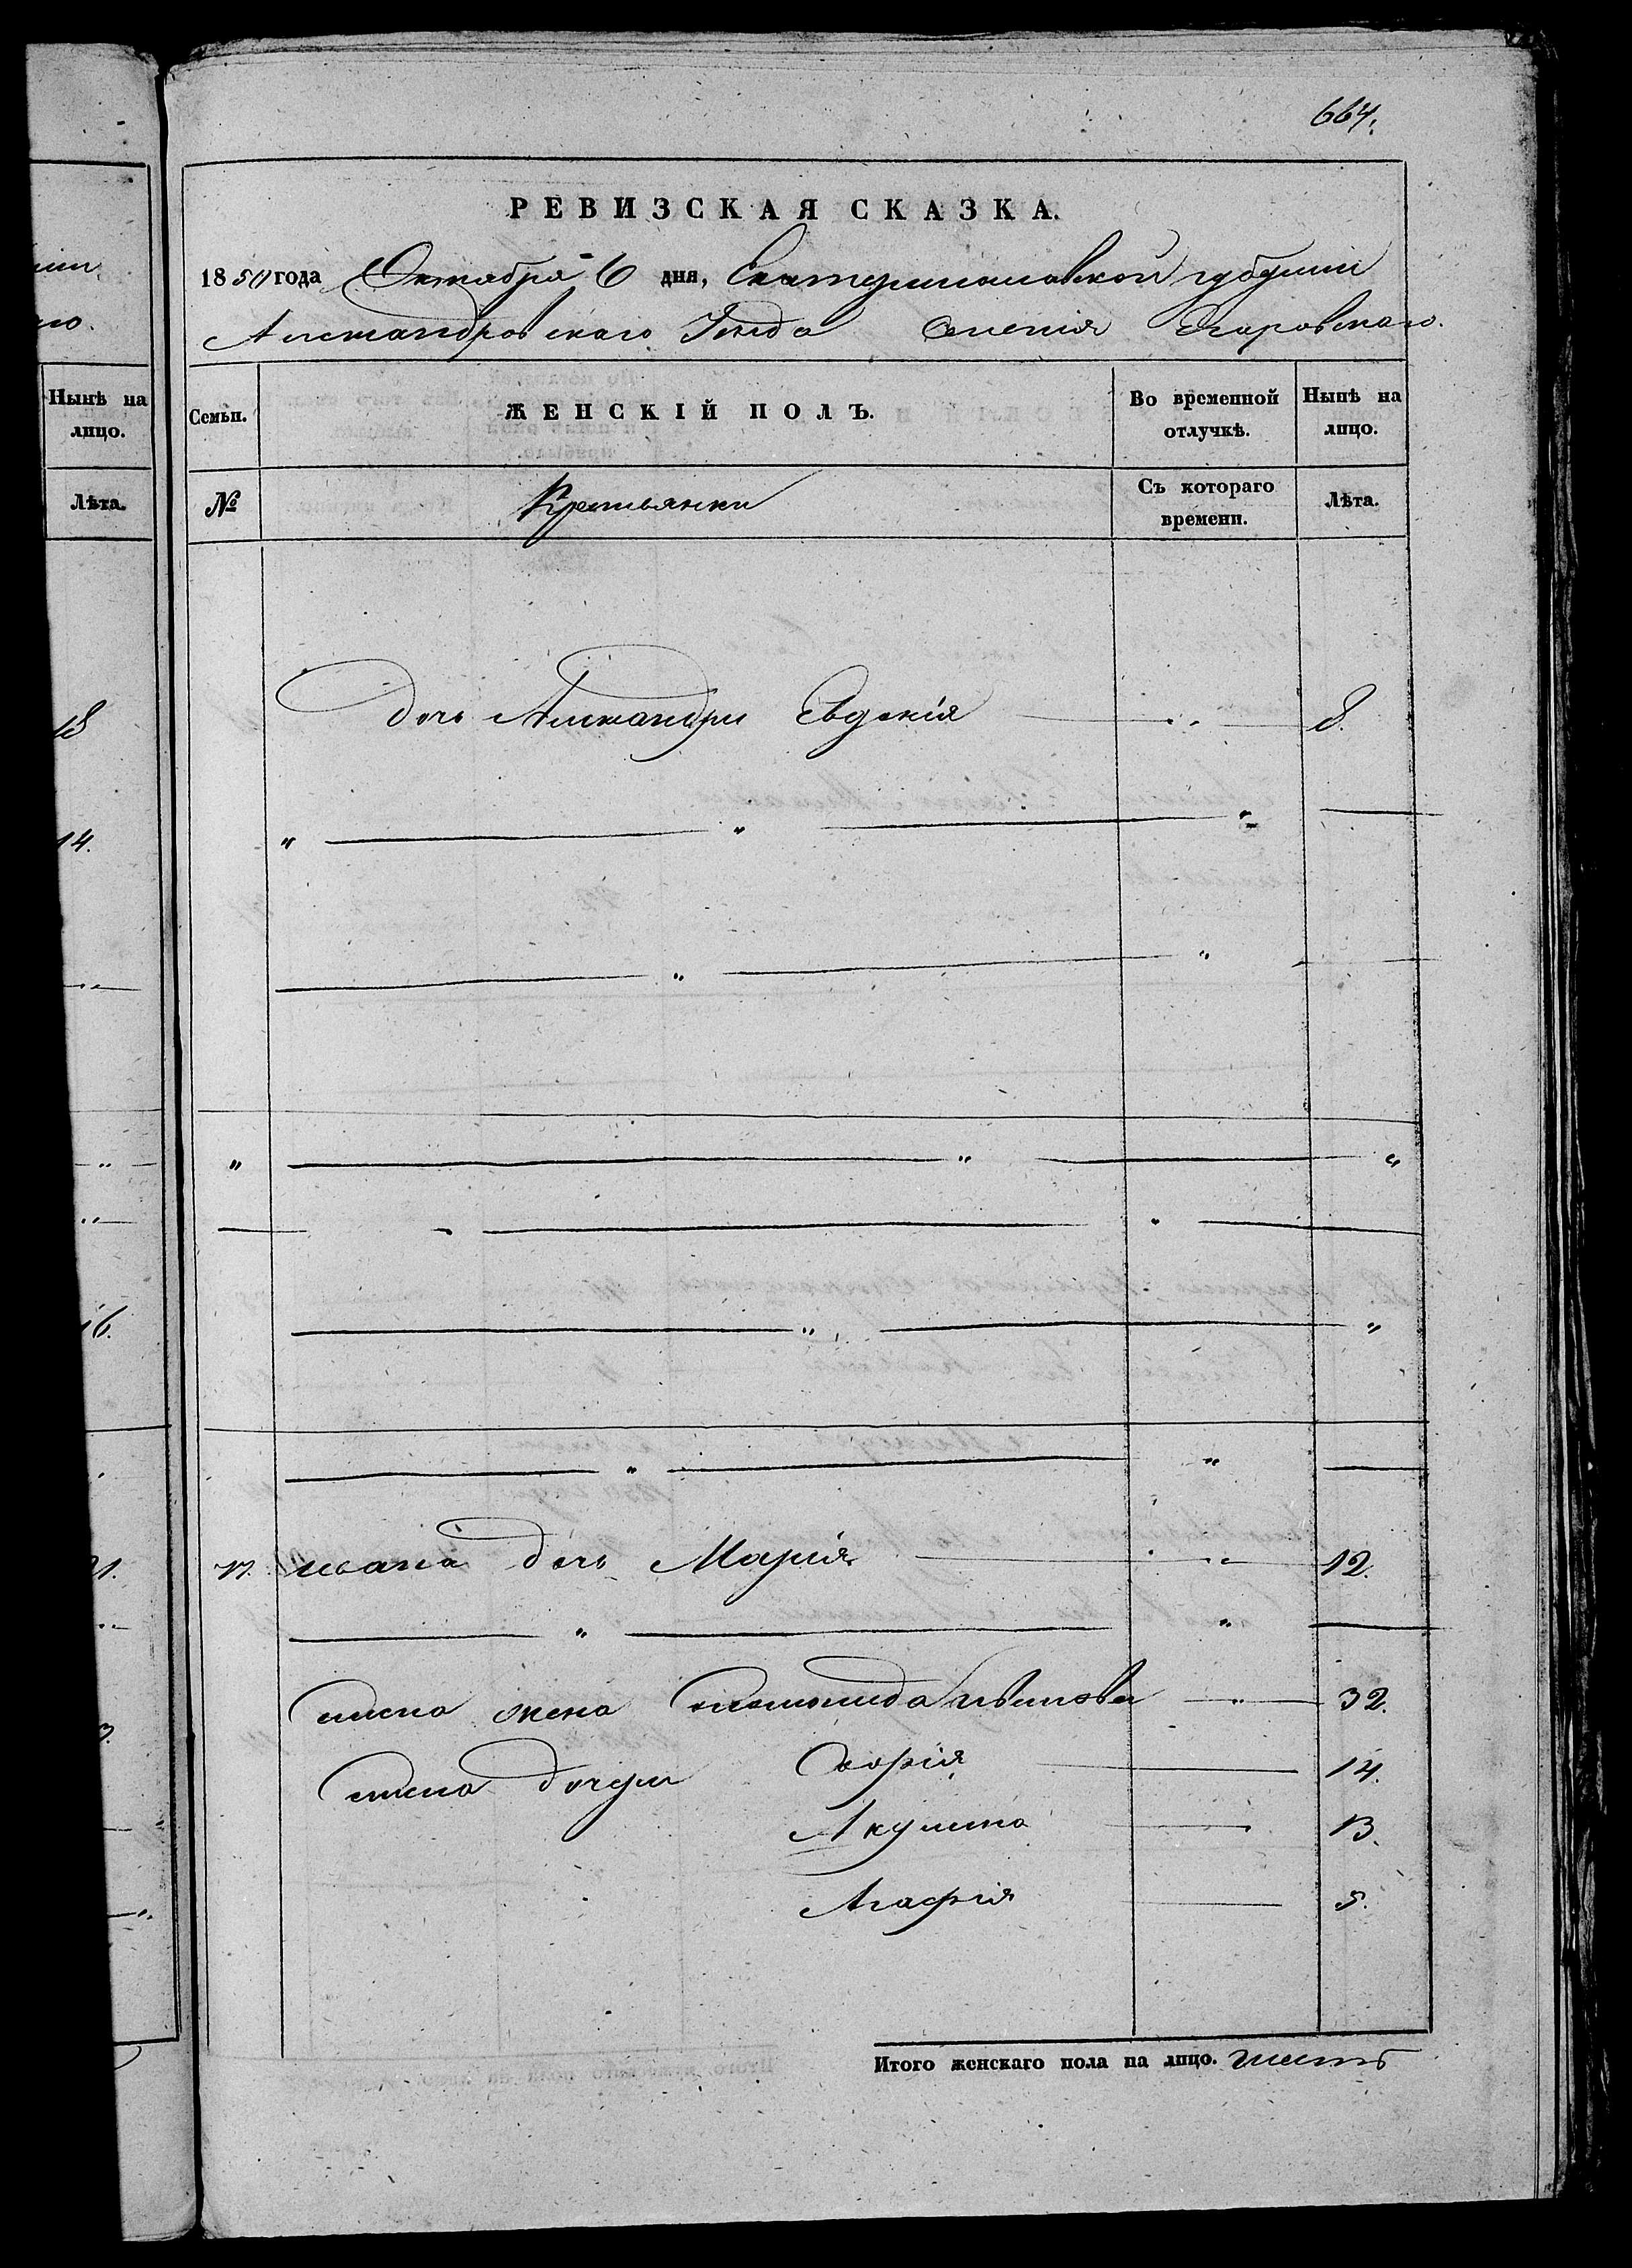 664.
РЕВИЗСКАЯ СКАЗКА.
1850 года Октября 6 дня, Екатеринославской губернии
Александровскаго Уезда Селения Егоровскаго.
Нынѣ на лицо.
Семьи.
ЖЕНСКІЙ ПОЛЪ.
Во временной отлучкѣ.
Нынѣ на лицо.
Лѣта.
№
Крестьянки
Съ котораго времени.
Лѣта.
18
14.
16.
дочь Александры Евдокія 8.
" "
"
" " "
" "
17. Ивана дочь Марія " 12.
" "
жена " 32.
дочери Софія 14.
Акулина 13.
Агафія 5.
Итого женскаго пола на лицо. шесть